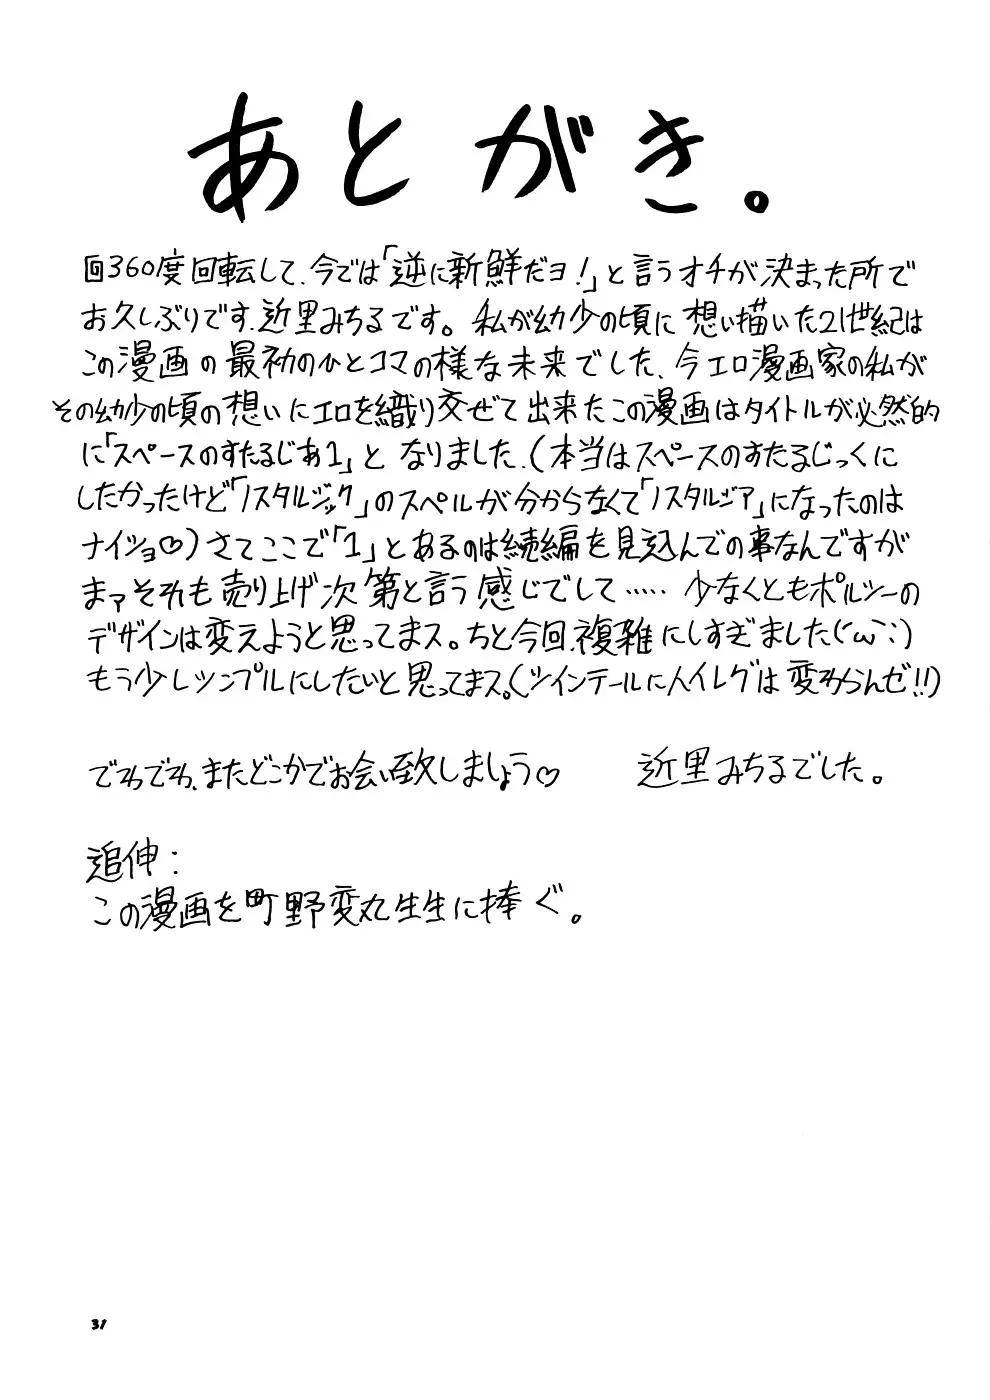 あとがき。
回360度回転して、今では「逆に新鮮だヨ!」と言うオチが決まった所で
お久しぶりです、近里みちるです。私が幼少の頃に想い描いた21世紀は
この漫画の最初のひとコマの様な未来でした、今エロ漫画家の私が
その幼少の頃の想いにエロを織り交ぜて出来たこの漫画はタイトルが必然的
に「スペースのすたるじあ1」となりました、(本当はスペースのすたるじっくに
したかったけど「ノスタルジック」のスペルが分からなくて「ノスタルジア」になったのは
ナイショ♡)さてここで「1」とあるのは続編を見込んでの事なんですが
まァそれも売り上げ次第と言う感じでして……少なくともポルシーの
デザインは変えようと思ってまス。ちと今回、複雑にしすぎました(´ω`;)
もう少しシンプルにしたいと思ってまス。(ツインテールにハイレグは変わらんゼ!!)
でわでわ、またどこかでお会い致しましょう♡ 近里みちるでした。
追伸:
この漫画を町野変丸先生に捧ぐ。
31